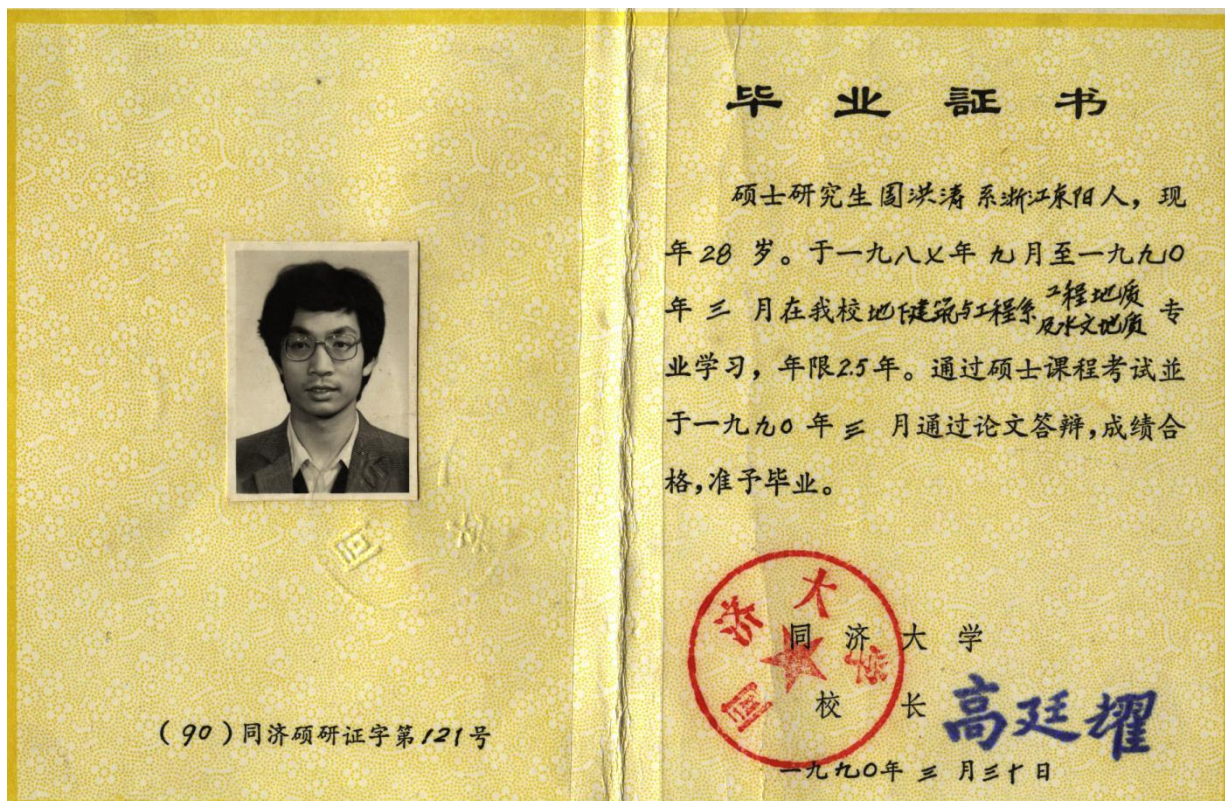 (90)同济硕研证字第121号
毕业証书
硕士研究生周洪涛系浙江东阳人，现
年28岁。于一九八七年九月至一九九〇
年三月在我校地下建筑与工程系工程地质及水文地质专
业学习，年限2.5年。通过硕士课程考试並
于一九九〇年三月通过论文答辩，成绩合
格，准予毕业。
同济大学
同济大学
校长 高廷耀
一九九〇年三月三十日